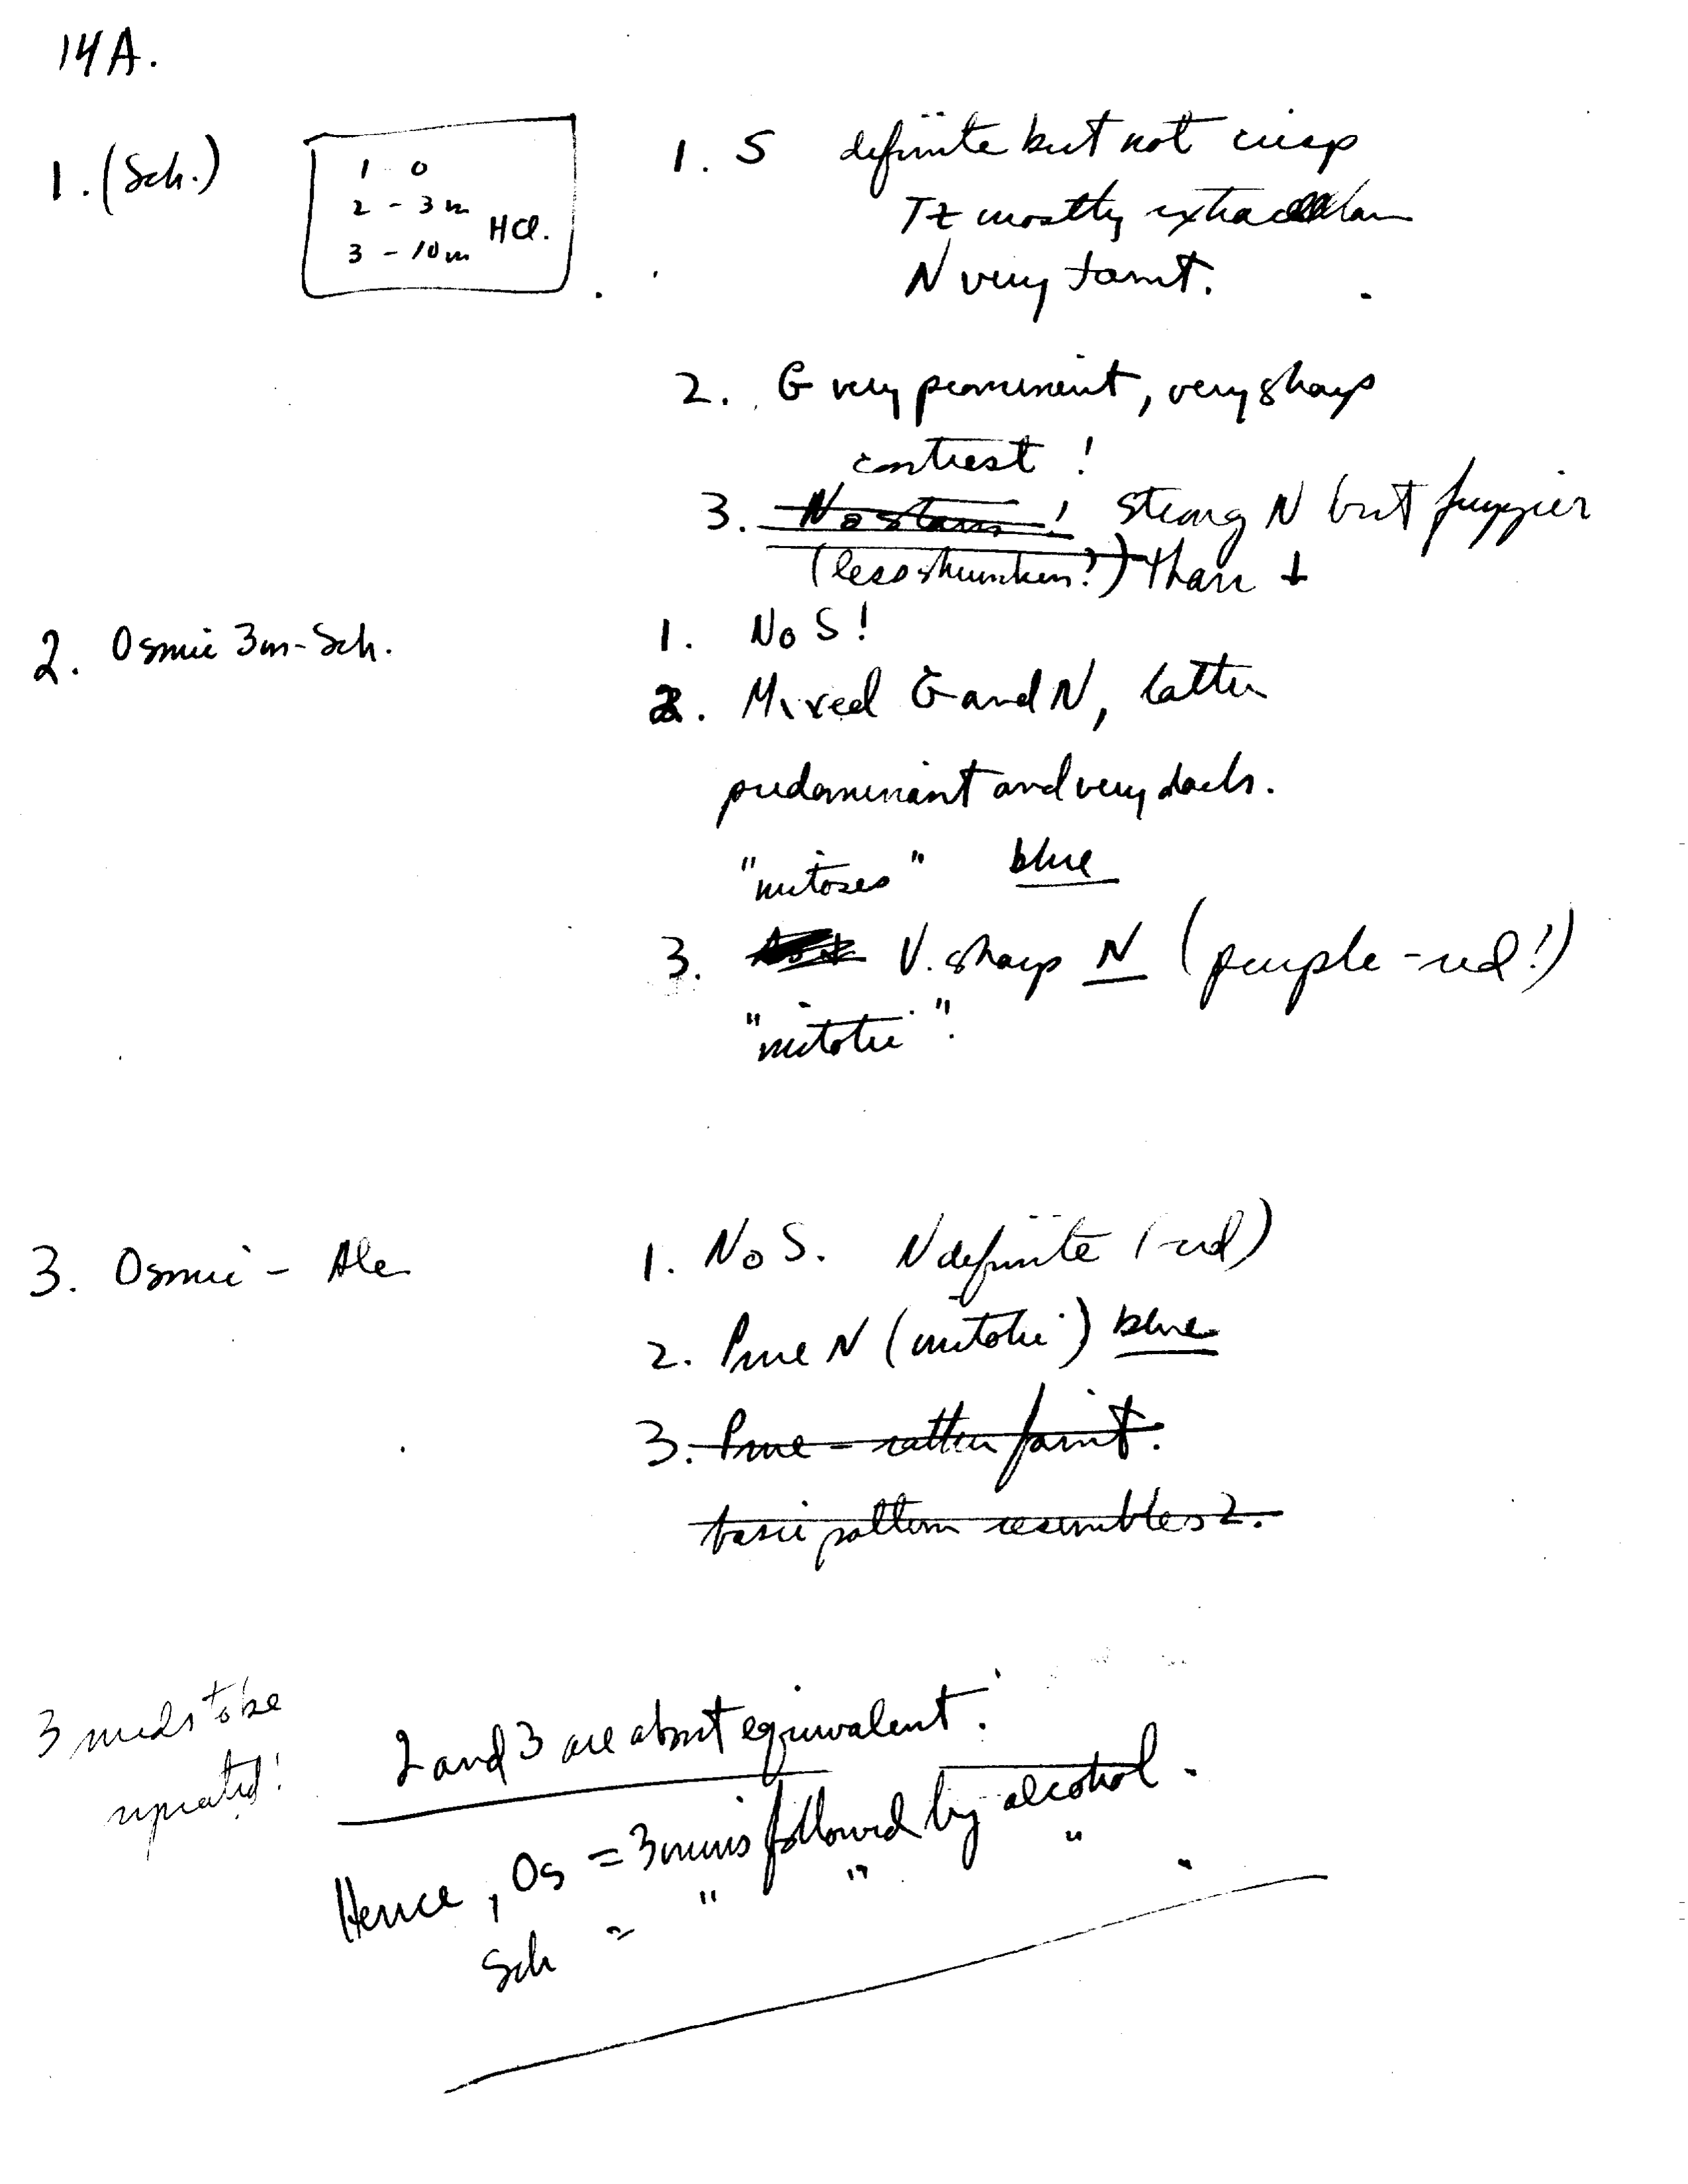 14A.
1. (Sch.)
1 - 0
2 - 3m
3 - 10m HCl.
1. S definite but not crisp
Tz mostly extracellular
N very faint.
2. G very prominent, very sharp
contrast!
3. No stain! strong N but fuzzier
(less shrunken?) than
2. Osmic 3m-Sch.
1. No S!
2. Mixed G and N, latter
predominant and very dark.
"mitoses" blue
3. V. sharp N (purple-red!)
"mitotic".
3. Osmic - Alc
1. No S. N definite (red)
2. Pure N (mitotic) blue
3. Pure - rather faint.
basic pattern resembles 2.
3 needs to be
repeated!
2 and 3 are about equivalent.
Hence, Os = 3 mins followed by alcohol.
Sch = " " "